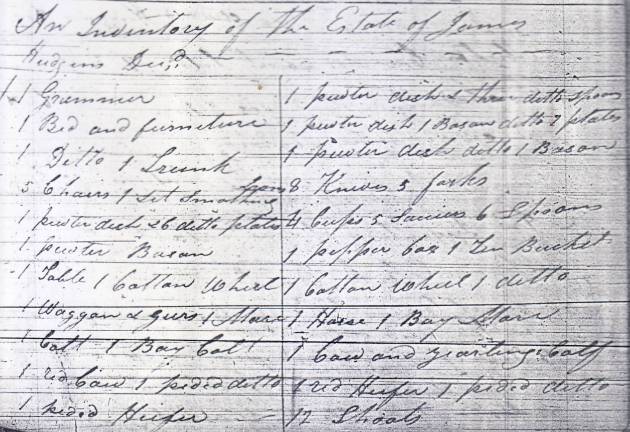 An Inventory of the Estate of James
Hudgins Dec,d
1 Grammer
1 Bed and furniture
1 Ditto 1 Trunk
5 Chairs 1 Set Smothing Irons
1 pewter dish & 6 ditto plates
1 pewter Bason
1 Table 1 Cotton Wheel
1 Waggan & Gurs 1 Mare
1 Colt 1 Bay Colt
1 red Cow 1 pided ditto
1 pided Heifer
1 pewter dish & three ditto spoons
1 pewter dish 1 Bason ditto 7 plates
1 pewter dish ditto 1 Bason
8 Knives 5 forks
4 Cups 5 Saucers 6 Spoons
1 pepper Box 1 Tin Bucket
1 Cotton Wheel 1 ditto
1 Horse 1 Bay Mare
1 Cow and yearling Calf
1 red Heifer 1 pided ditto
12 Shoats